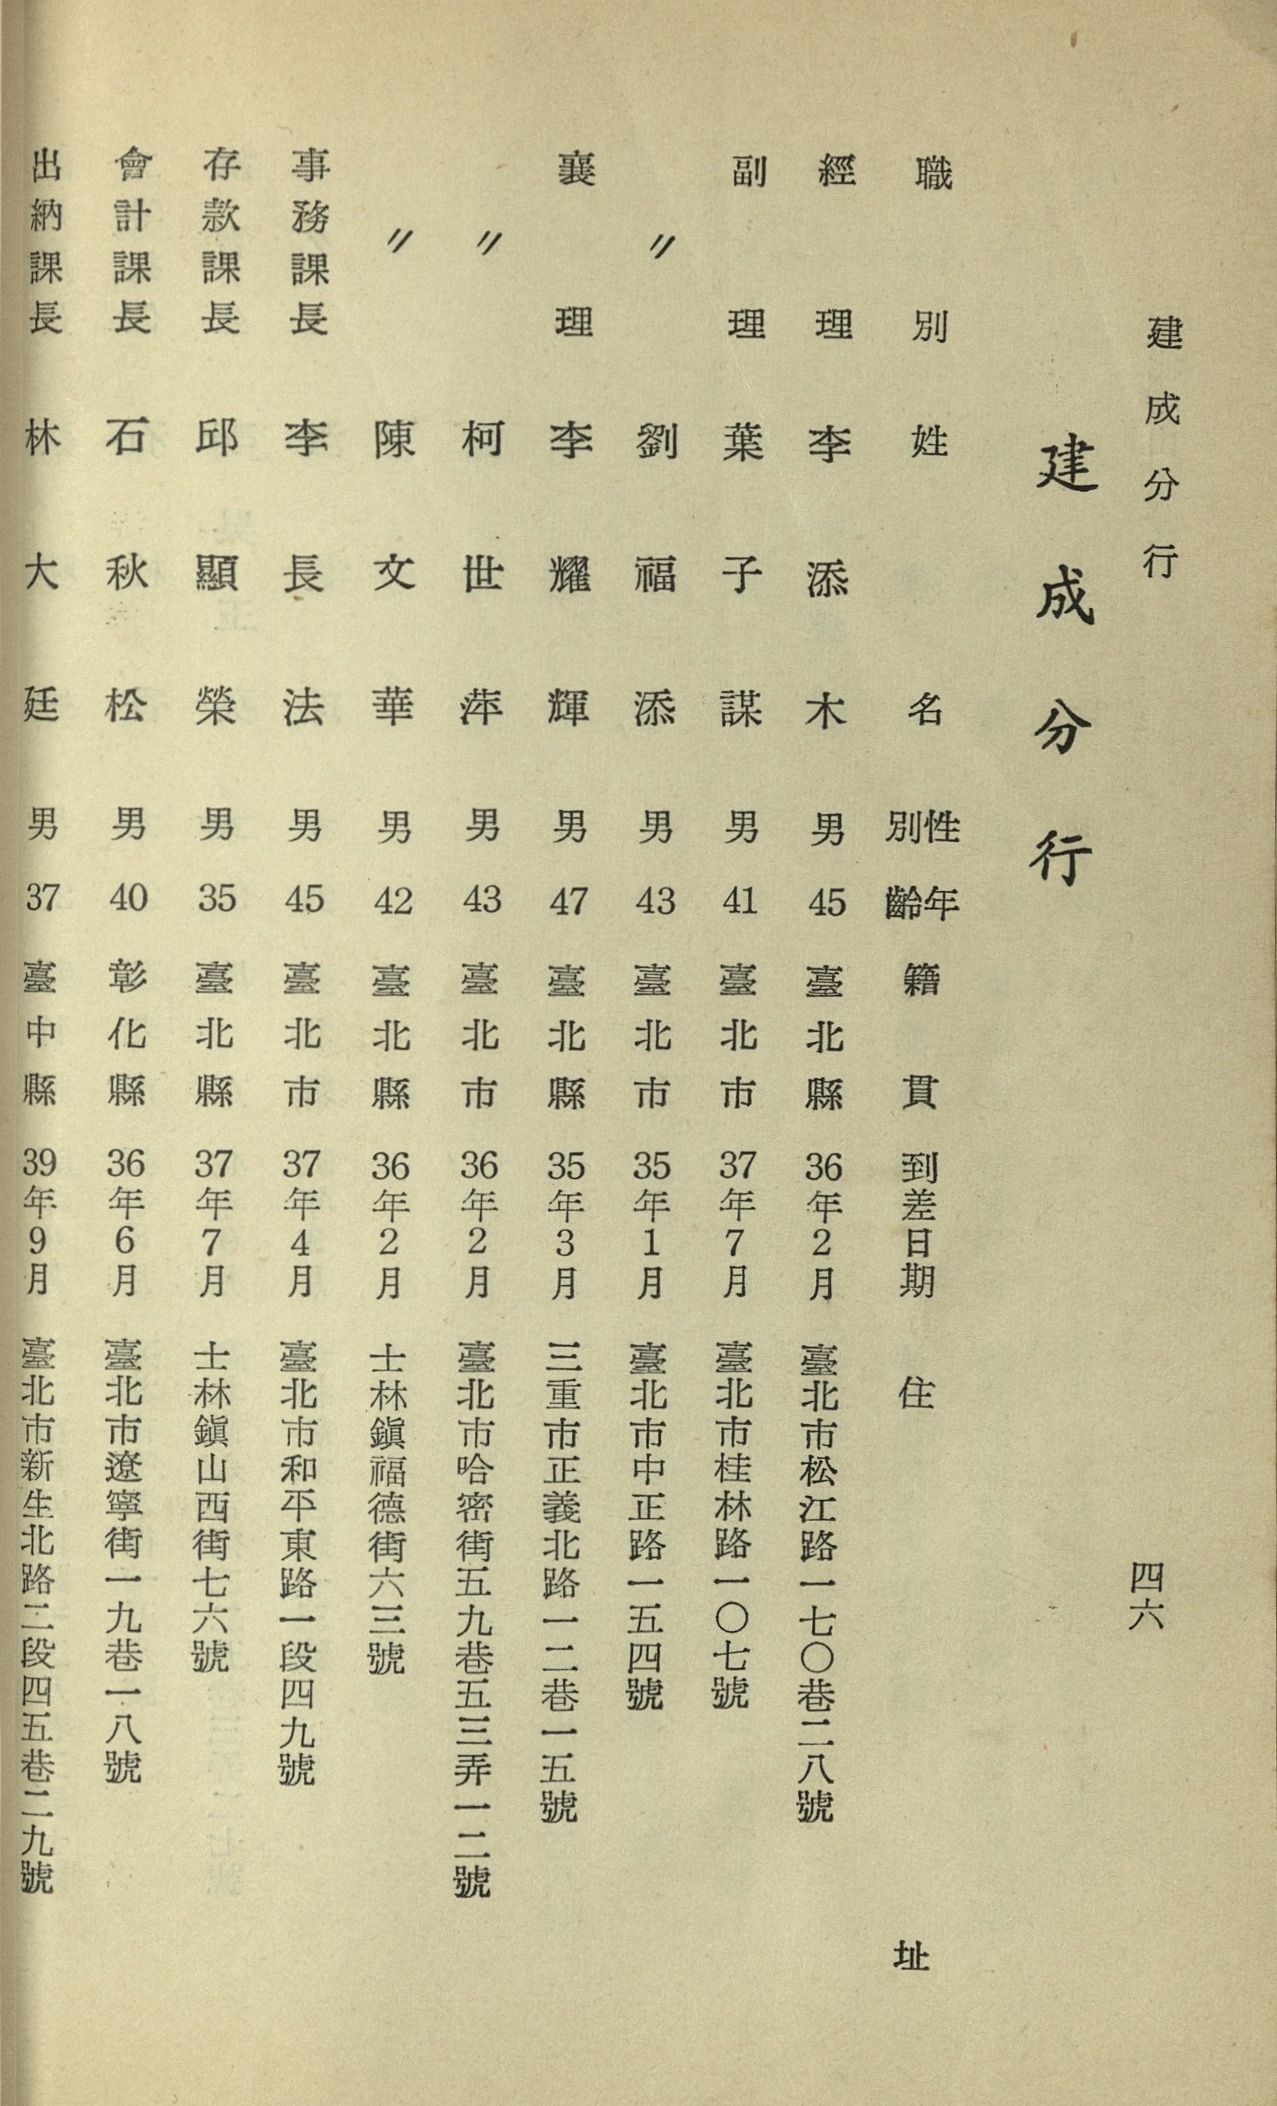 建成分行
四六
建成分行
職別 姓名 性別 年齡 籍貫 到差日期 住址
經理 李添木 男 45 臺北縣 36年2月 臺北市松江路一七〇巷二八號
副理 葉子謀 男 41 臺北市 37年7月 臺北市桂林路一〇七號
〃 劉福添 男 43 臺北市 35年1月 臺北市中正路一五四號
襄理 李耀輝 男 47 臺北縣 35年3月 三重市正義北路一二巷一五號
〃 柯世萍 男 43 臺北市 36年2月 臺北市哈密街五九巷五三弄一二號
〃 陳文華 男 42 臺北縣 36年2月 士林鎭福德街六三號
事務課長 李長法 男 45 臺北市 37年4月 臺北市和平東路一段四九號
存款課長 邱顯榮 男 35 臺北縣 37年7月 士林鎭山西街七六號
會計課長 石秋松 男 40 彰化縣 36年6月 臺北市遼寧街一九巷一八號
出納課長 林大廷 男 37 臺中縣 39年9月 臺北市新生北路二段四五巷二九號